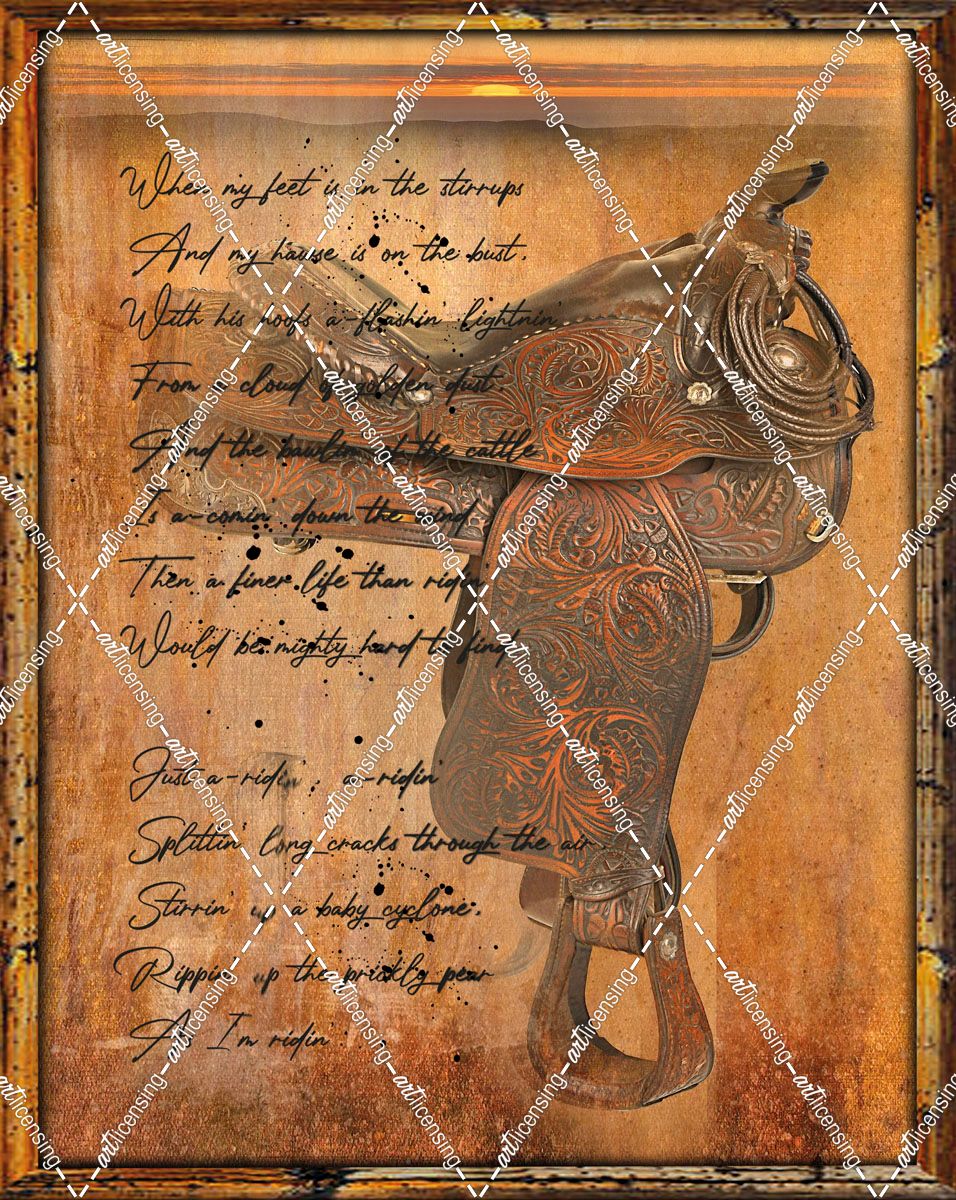 When my feet is in the stirrups
And my hawse is on the bust.
With his hoofs a-flashin' lightnin'
From a cloud of golden dust.
And the bawlin' of the cattle
Is a-comin' down the wind
Then a finer life than ridin'
Would be mighty hard to find.
Just a-ridin', a-ridin'
Splittin' long cracks through the air.
Stirrin' up a baby cyclone.
Rippin' up the prickly pear
As I'm ridin'
artlicensing